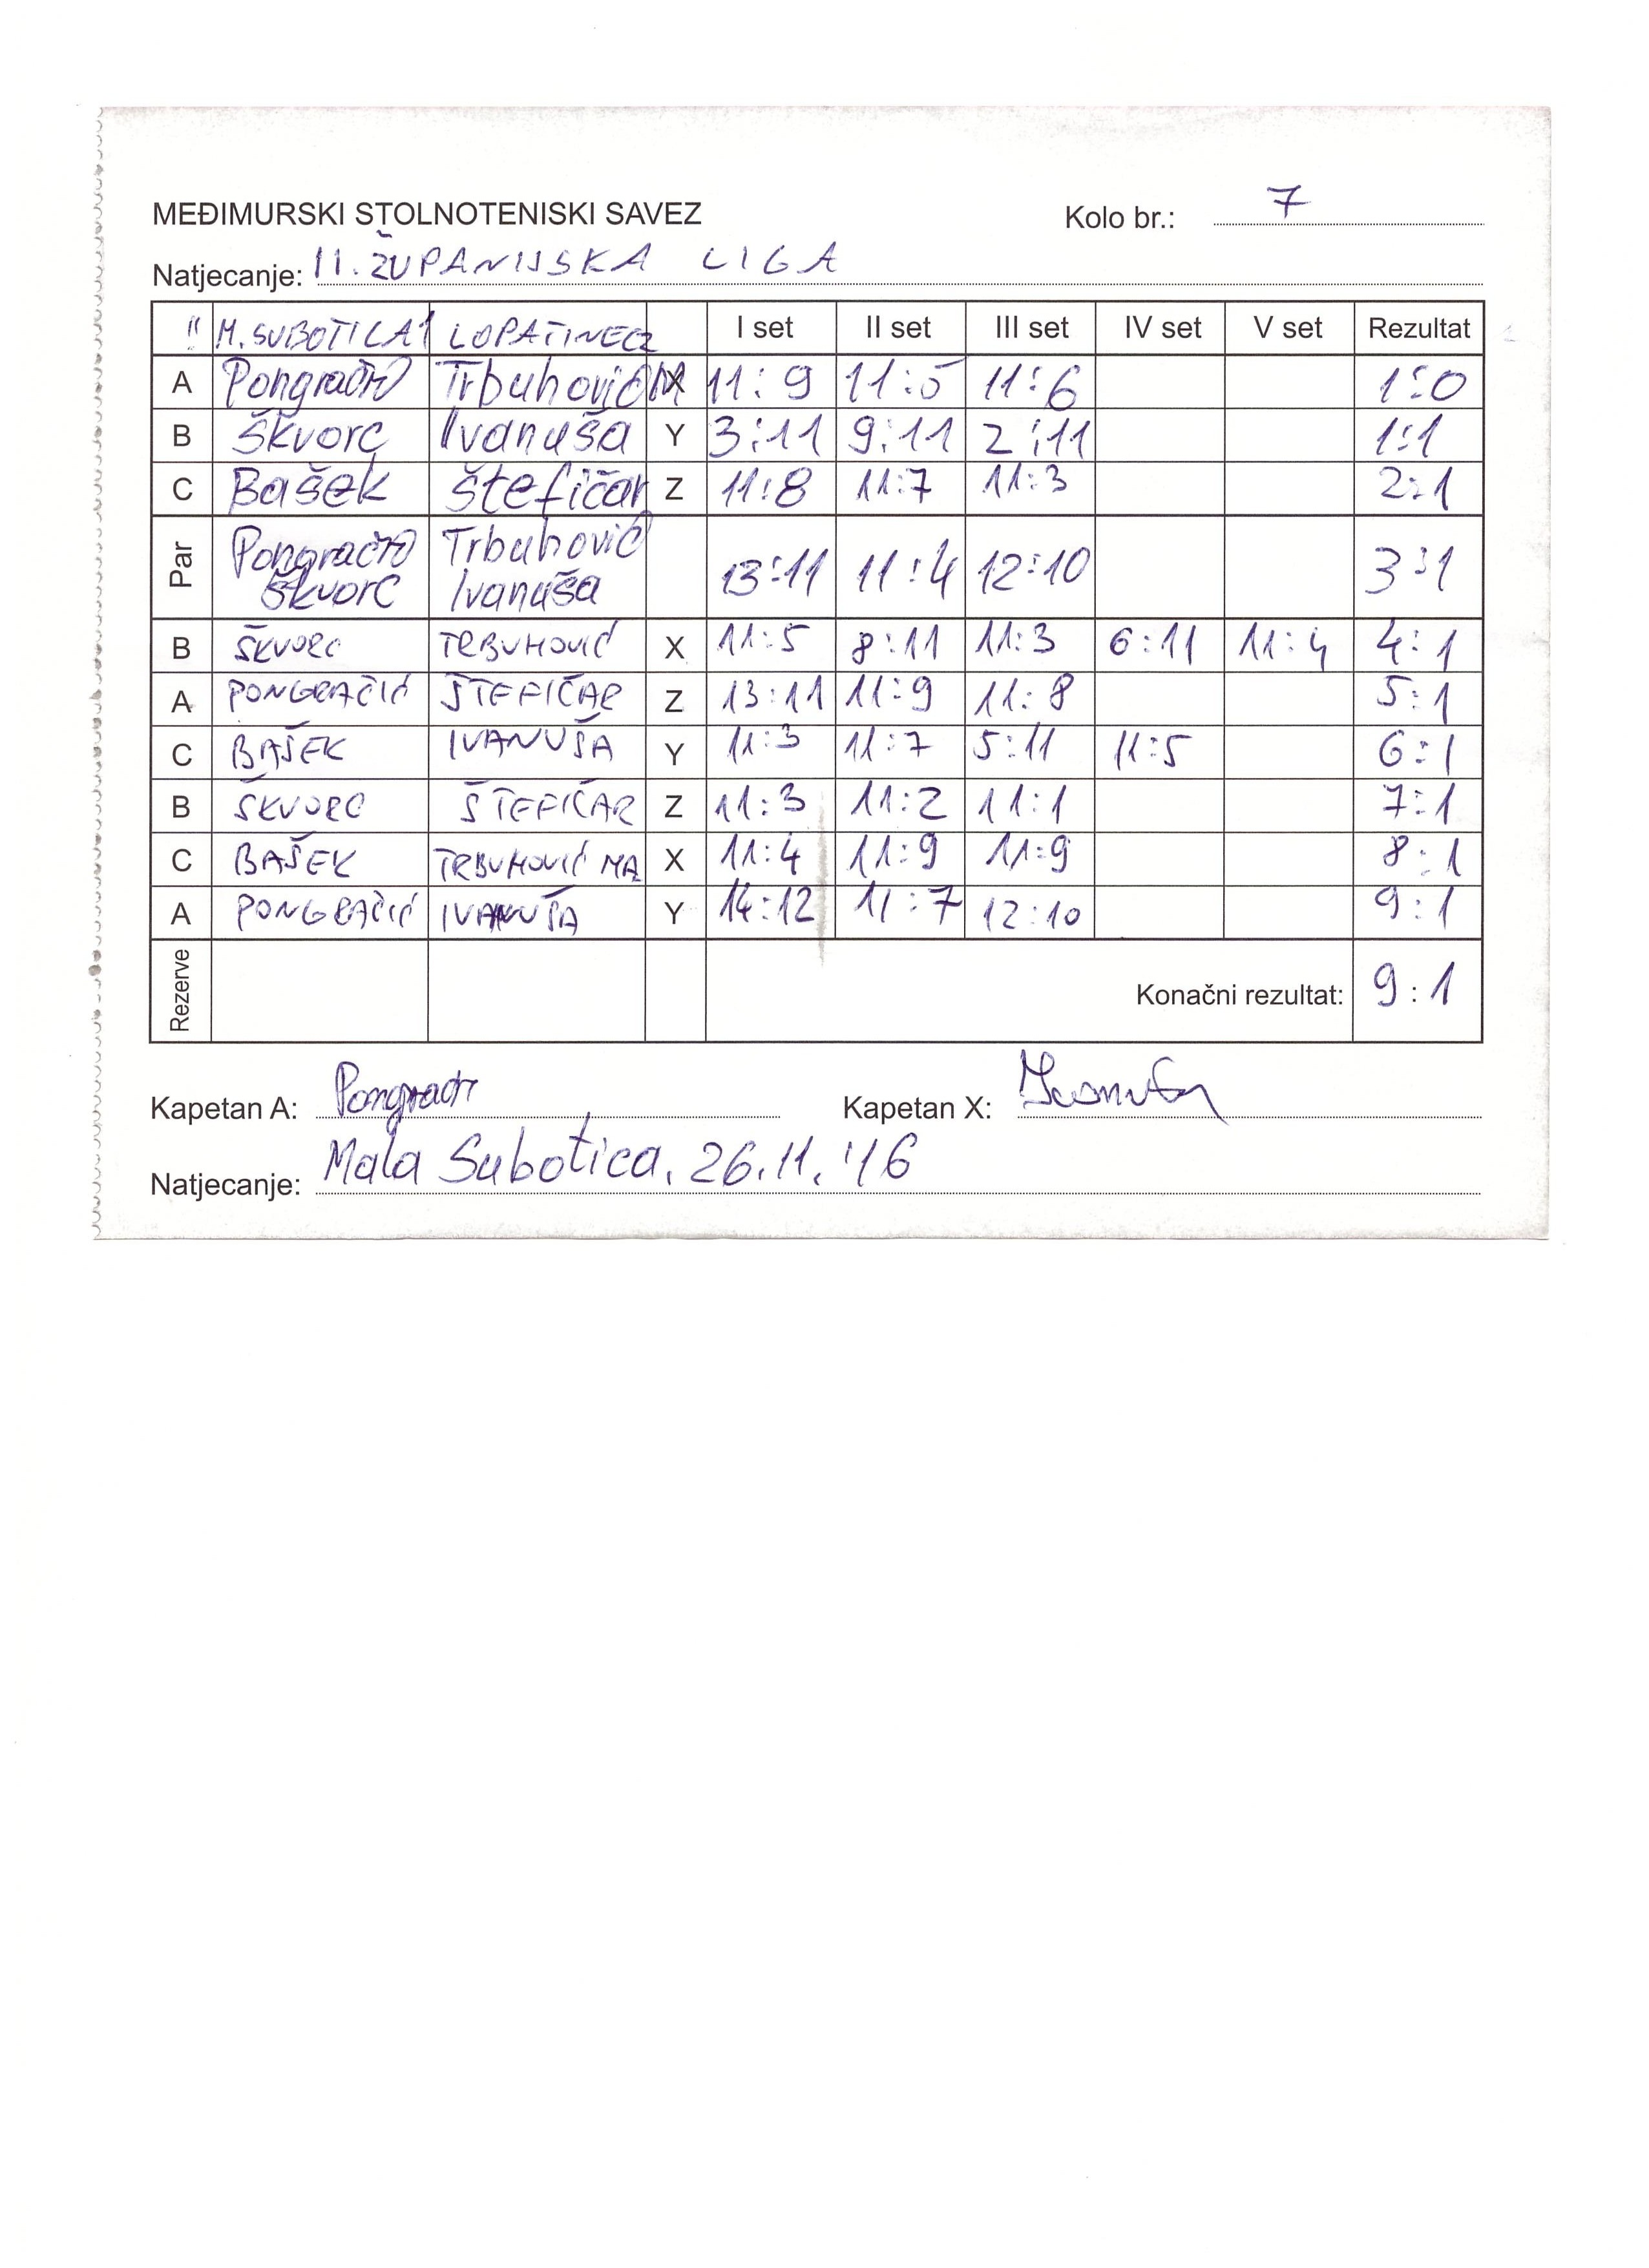 MEĐIMURSKI STOLNOTENISKI SAVEZ Kolo br.: 7
Natjecanje: II. ŽUPANIJSKA LIGA
" M. SUBOTICA 1 LOPATINEC 2 I set II set III set IV set V set Rezultat
A Pongračić Trbuhović M X 11:9 11:5 11:6 1:0
B Škvorc Ivanuša Y 3:11 9:11 2:11 1:1
C Bašek Štefičar Z 11:8 11:7 11:3 2:1
Par Pongračić Trbuhović
Škvorc Ivanuša 13:11 11:4 12:10 3:1
B ŠKVORC TRBUHOVIĆ X 11:5 8:11 11:3 6:11 11:4 4:1
A PONGRAČIĆ ŠTEFIČAR Z 13:11 11:9 11:8 5:1
C BAŠEK IVANUŠA Y 11:3 11:7 5:11 11:5 6:1
B ŠKVORC ŠTEFIČAR Z 11:3 11:2 11:1 7:1
C BAŠEK TRBUHOVIĆ MA X 11:4 11:9 11:9 8:1
A PONGRAČIĆ IVANUŠA Y 14:12 11:7 12:10 9:1
Rezerve Konačni rezultat: 9:1
Kapetan A: Kapetan X:
Natjecanje: Mala Subotica, 26.11.'16